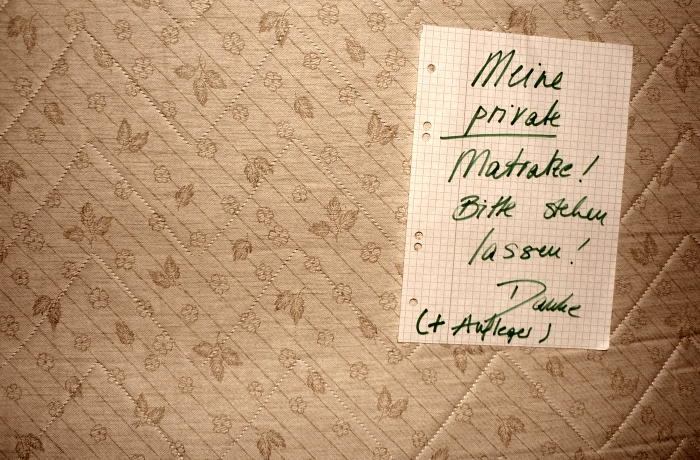 Meine
private
Matratze!
Bitte stehen
lassen!
Danke
(+ Aufleger)